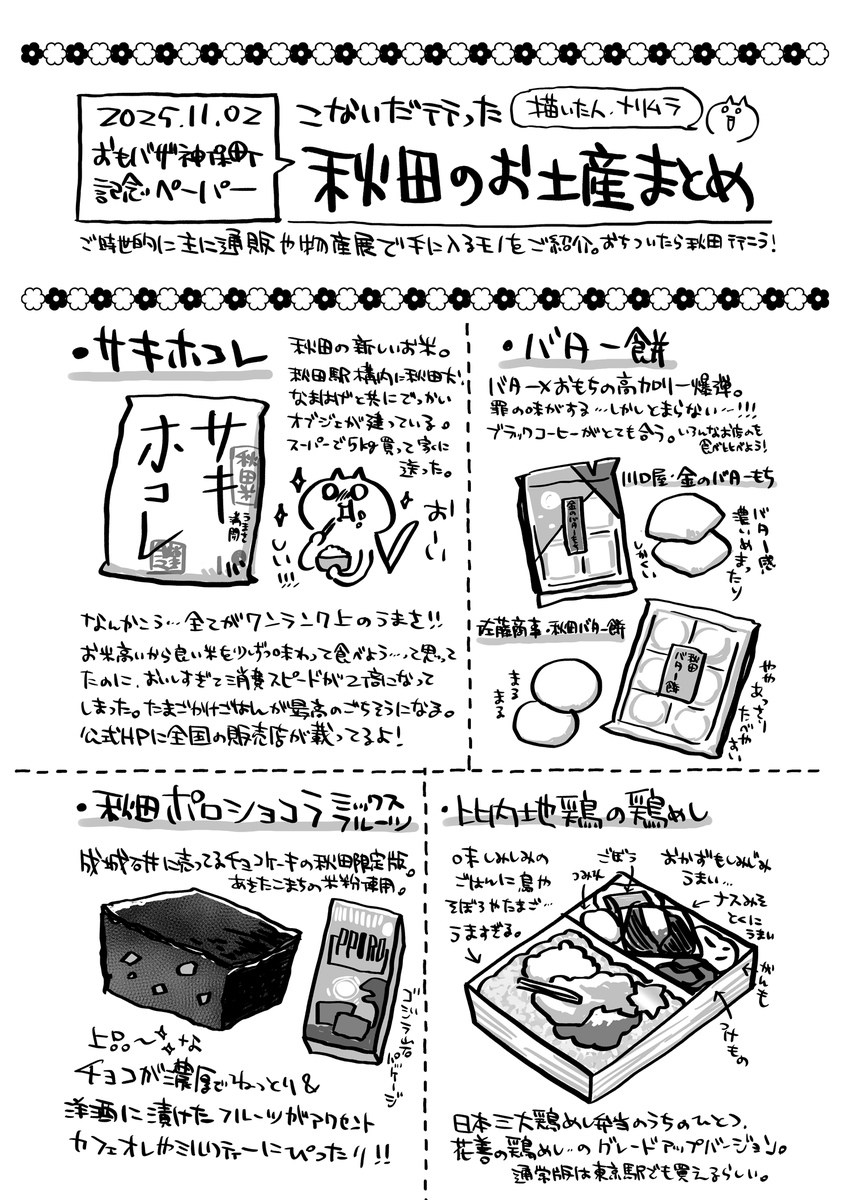 2025.11.02
おもバザ神保町
記念ペーパー
こないだ行った
描いた人.ナリムラ
秋田のお土産まとめ
ご時世的に主に通販や物産展で手に入るモノをご紹介。おちついたら秋田行こう!
・サキホコレ
秋田の新しいお米。
秋田駅構内に秋田犬、
なまはげと共にでっかい
オブジェが建っている。
スーパーで5kg買って家に
送った。
サキ
ホコレ
秋田米
うまさ
満開
おーい
しい!!!
なんかこう…全てがワンランク上のうまさ!!
お米高いから良い米も少しずつ味わって食べよう…って思って
たのに、おいしすぎて消費スピードが2倍になって
しまった。たまごかけごはんが最高のごちそうになる。
公式HPに全国の販売店が載ってるよ!
・バター餅
バター×おもちの高カロリー爆弾。
罪の味がする…しかしとまらない…!!!
ブラックコーヒーがとても合う。いろんなお店のを
食べくらべよう!
川口屋・金のバターもち
金のバターもち
しかくい
バター感
濃いめ まったり
佐藤商事・秋田バター餅
まる
まる
秋田
バター餅
やや
あっさり
たべやすい
・秋田ポロショコラ ミックス
フルーツ
成城石井に売ってるチョコケーキの秋田限定版。
あきたこまちの米粉使用。
上品〜な
チョコが濃厚でねっとり&
洋酒に漬けたフルーツがアクセント
カフェオレやミルクティーにぴったり!!
・比内地鶏の鶏めし
味しみしみの
ごはんに鳥や
そぼろやたまご…
うますぎる。
つみれ
ごぼう
おかずもしみじみ
うまい…
ナスみそ
とくに
うまい
がんも
つけもの
日本三大鶏めし弁当のうちのひとつ、
花善の鶏めし…のグレードアップバージョン。
通常版は東京駅でも買えるらしい。